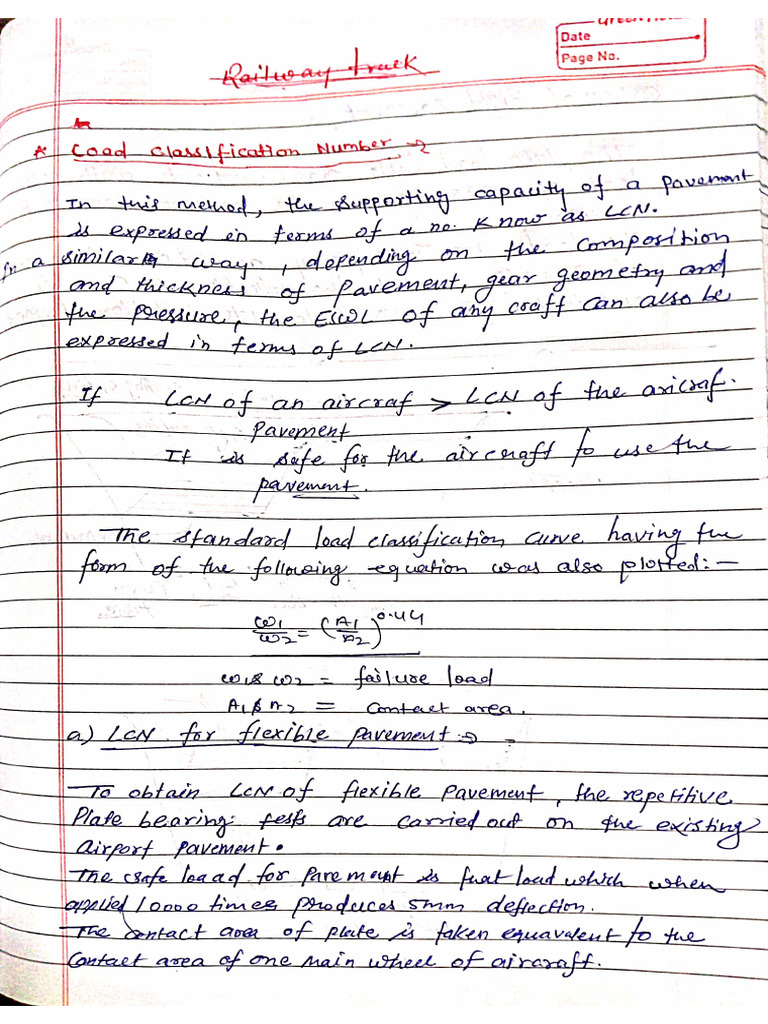 Date
Page No.
Railway track
* Load Classification Number →
In this method, the supporting capacity of a pavement
is expressed in terms of a no. Know as LCN.
In a similar way, depending on the composition
and thickness of pavement, gear geometry and
the pressure, the ESWL of any craft can also be
expressed in terms of LCN.
If LCN of an aircraf > LCN of the aricraf.
pavement
It is safe for the aircraft to use the
pavement.
The standard load classification curve having the
form of the following equation was also plotted:-
ω1/ω2 = (A1/A2)^0.44
ω1 & ω2 = failure load
A1 & A2 = Contact area.
a) LCN for flexible pavement →
To obtain LCN of flexible pavement, the repetitive
Plate bearing tests are carried out on the existing
airport pavement.
The safe loaad for pavement is that load which when
applied 10000 times produces 5mm deflection.
The contact area of plate is taken equavalent to the
Contact area of one main wheel of aircraft.